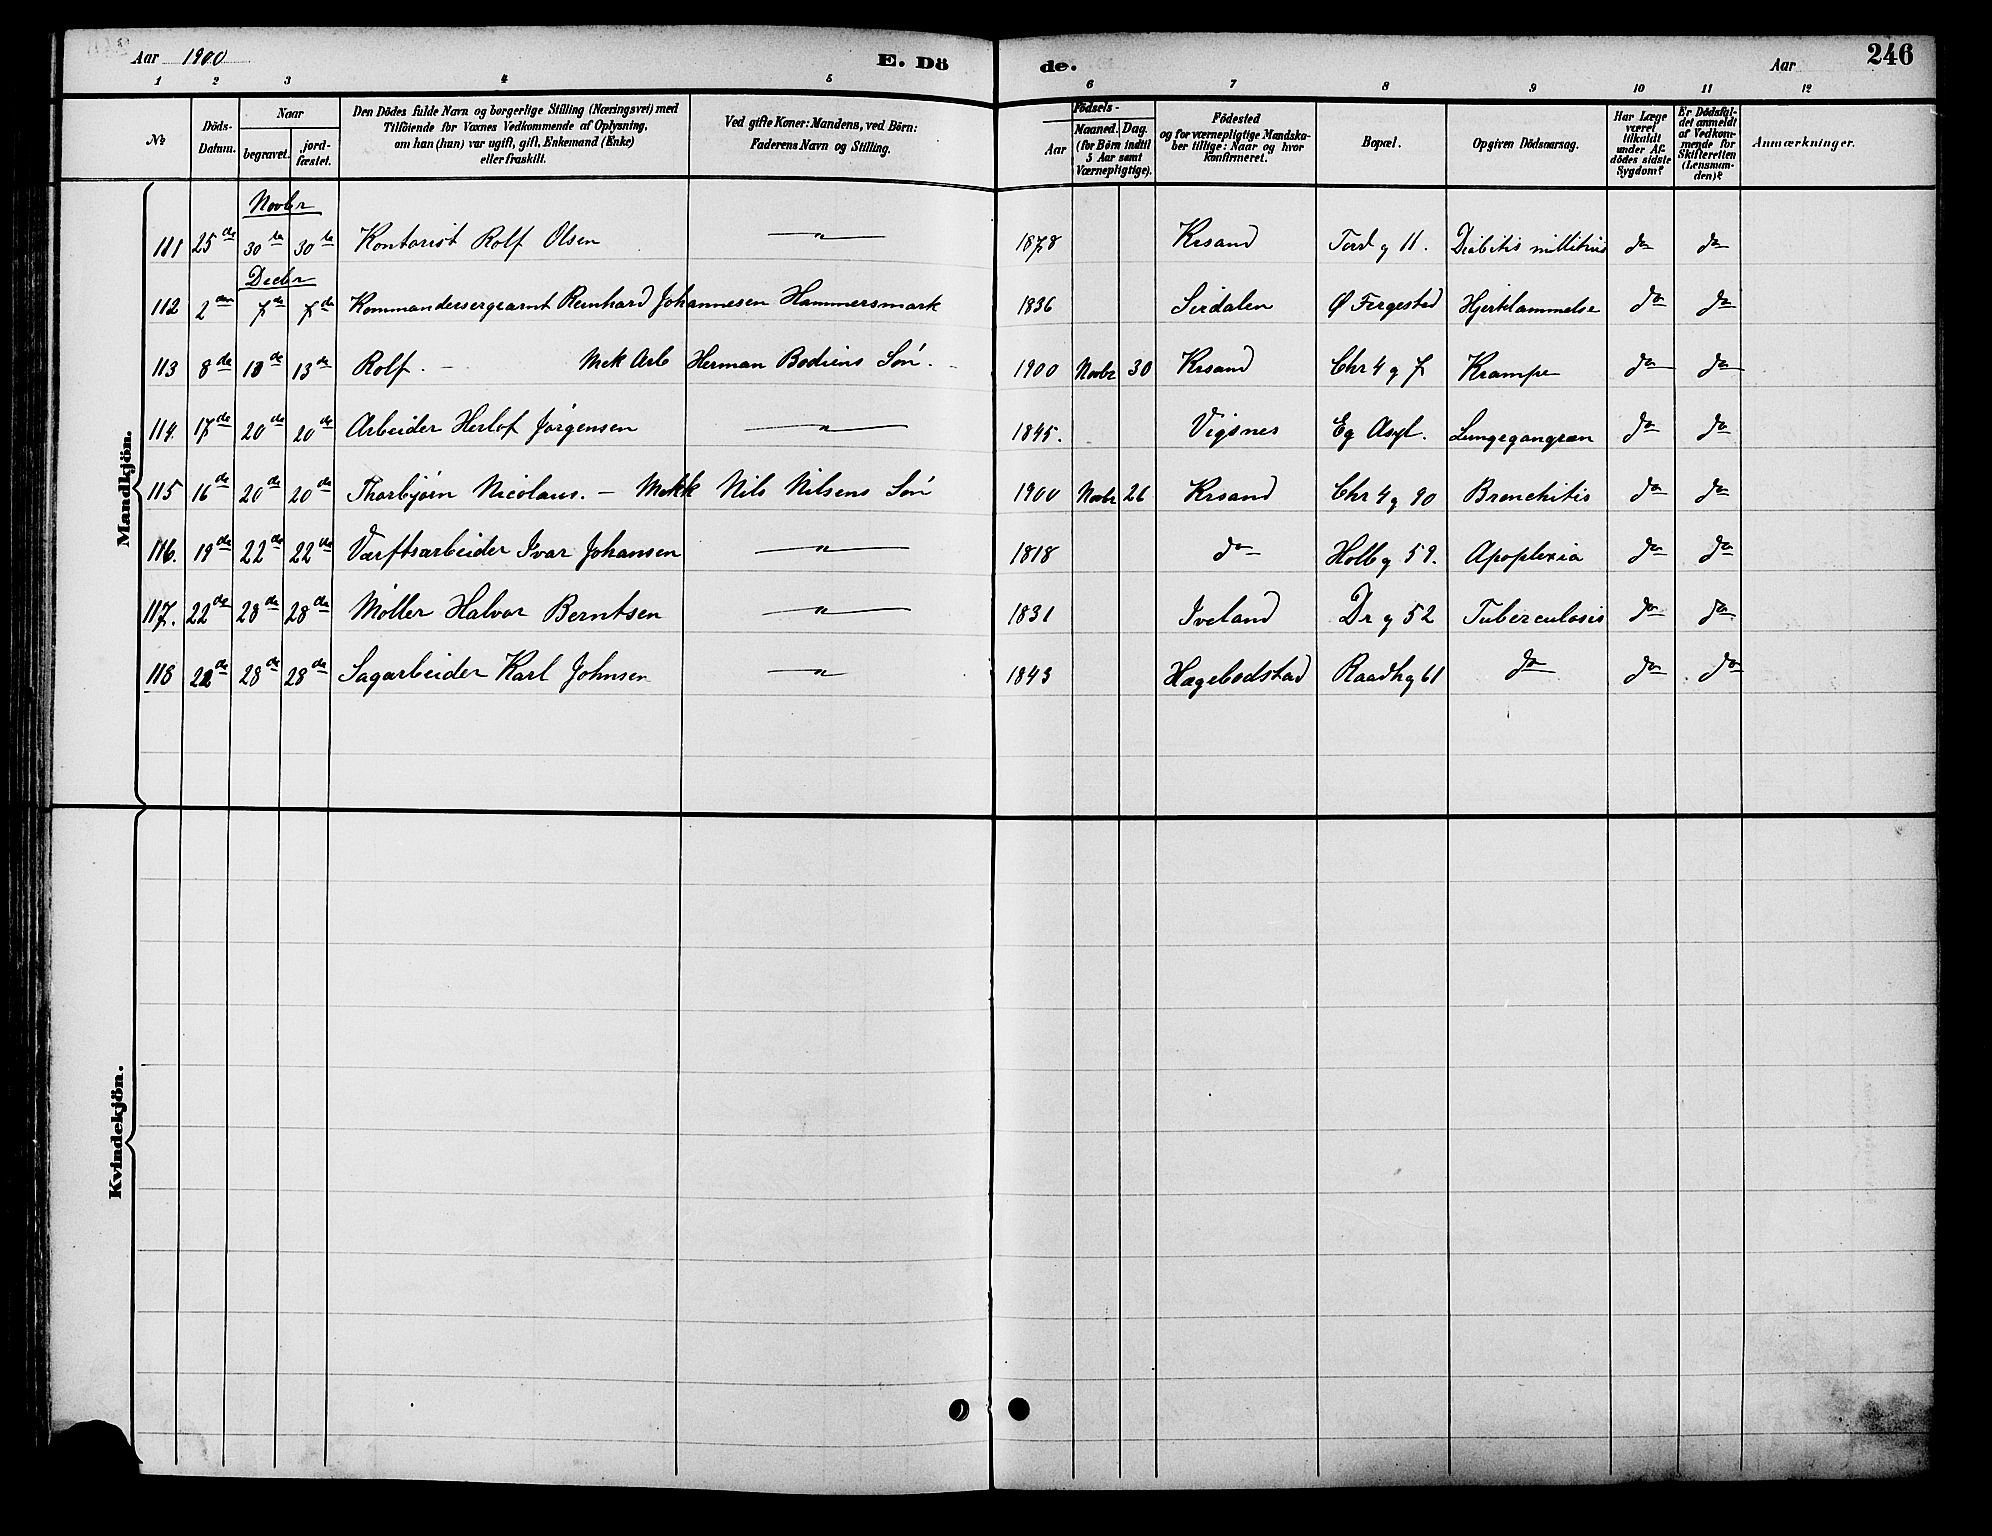 Aar 1900 E. Dö de. Aar 246
1 2 3 4 5 6 7 8 9 10 11 12
No Döds-Datum. Naar begravet. jordfæstet. Den Dödes fulde Navn og borgerlige Stilling (Næringsvei) med Tilföiende for Voxnes Vedkommende af Oplysning, om han (hun) var ugift, gift, Enkemand (Enke) eller fraskilt. Ved gifte Koner: Mandens, ved Börn: Faderens Navn og Stilling. Födsels- Aar Maaned. Dag. (for Börn indtil 5 Aar samt Værnepligtige). Födested og for værnepligtige Mandskaber tillige: Naar og hvor konfirmeret. Bopæl. Opgiven Dödsaarsag. Har Læge været tilkaldt under Afdödes sidste Sygdom? Er Dödsfaldet anmeldt af Vedkommende for Skifteretten (Lensmanden)? Anmærkninger.
Mandkjön.
Novbr
111 25de 30te 30te Kontorist Rolf Olsen — " — 1878 Krsand Tord g 11. Diabitis millitus do do
Decbr
112 2den 7de 7de Kommandersergeamt Reinhard Johannesen Hammersmark 1836 Sirdalen Ø Fergestad Hjertelammelse do do
113 8de 13de 13de Rolf. – Mek Arb Herman Bodiens Søn. 1900 Novbr 30 Krsand Chr 4 g 7 Krampe do do
114. 17de 20de 20de Arbeider Herlof Jørgensen — " — 1845. Vigsnes Eg Asyl. Lungegangræn do do
115 16de 20de 20de Thorbjørn Nicolaus. – Mekk Nils Nilsens Søn 1900 Novbr 26 Krsand Chr 4 g 90 Bronchitis do do
116. 19de 22de 22de Værftsarbeider Ivar Johansen — " — 1818 do Holb g 59. Apoplexia do do
117. 22de 28de 28de Møller Halvor Berntsen — " — 1831 Iveland Dr g 52 Tuberculosis do do
118 22de 28de 28de Sagarbeider Karl Johnsen — " — 1843 Hægebodstad Raadhg 61 do do do
Kvindekjön.